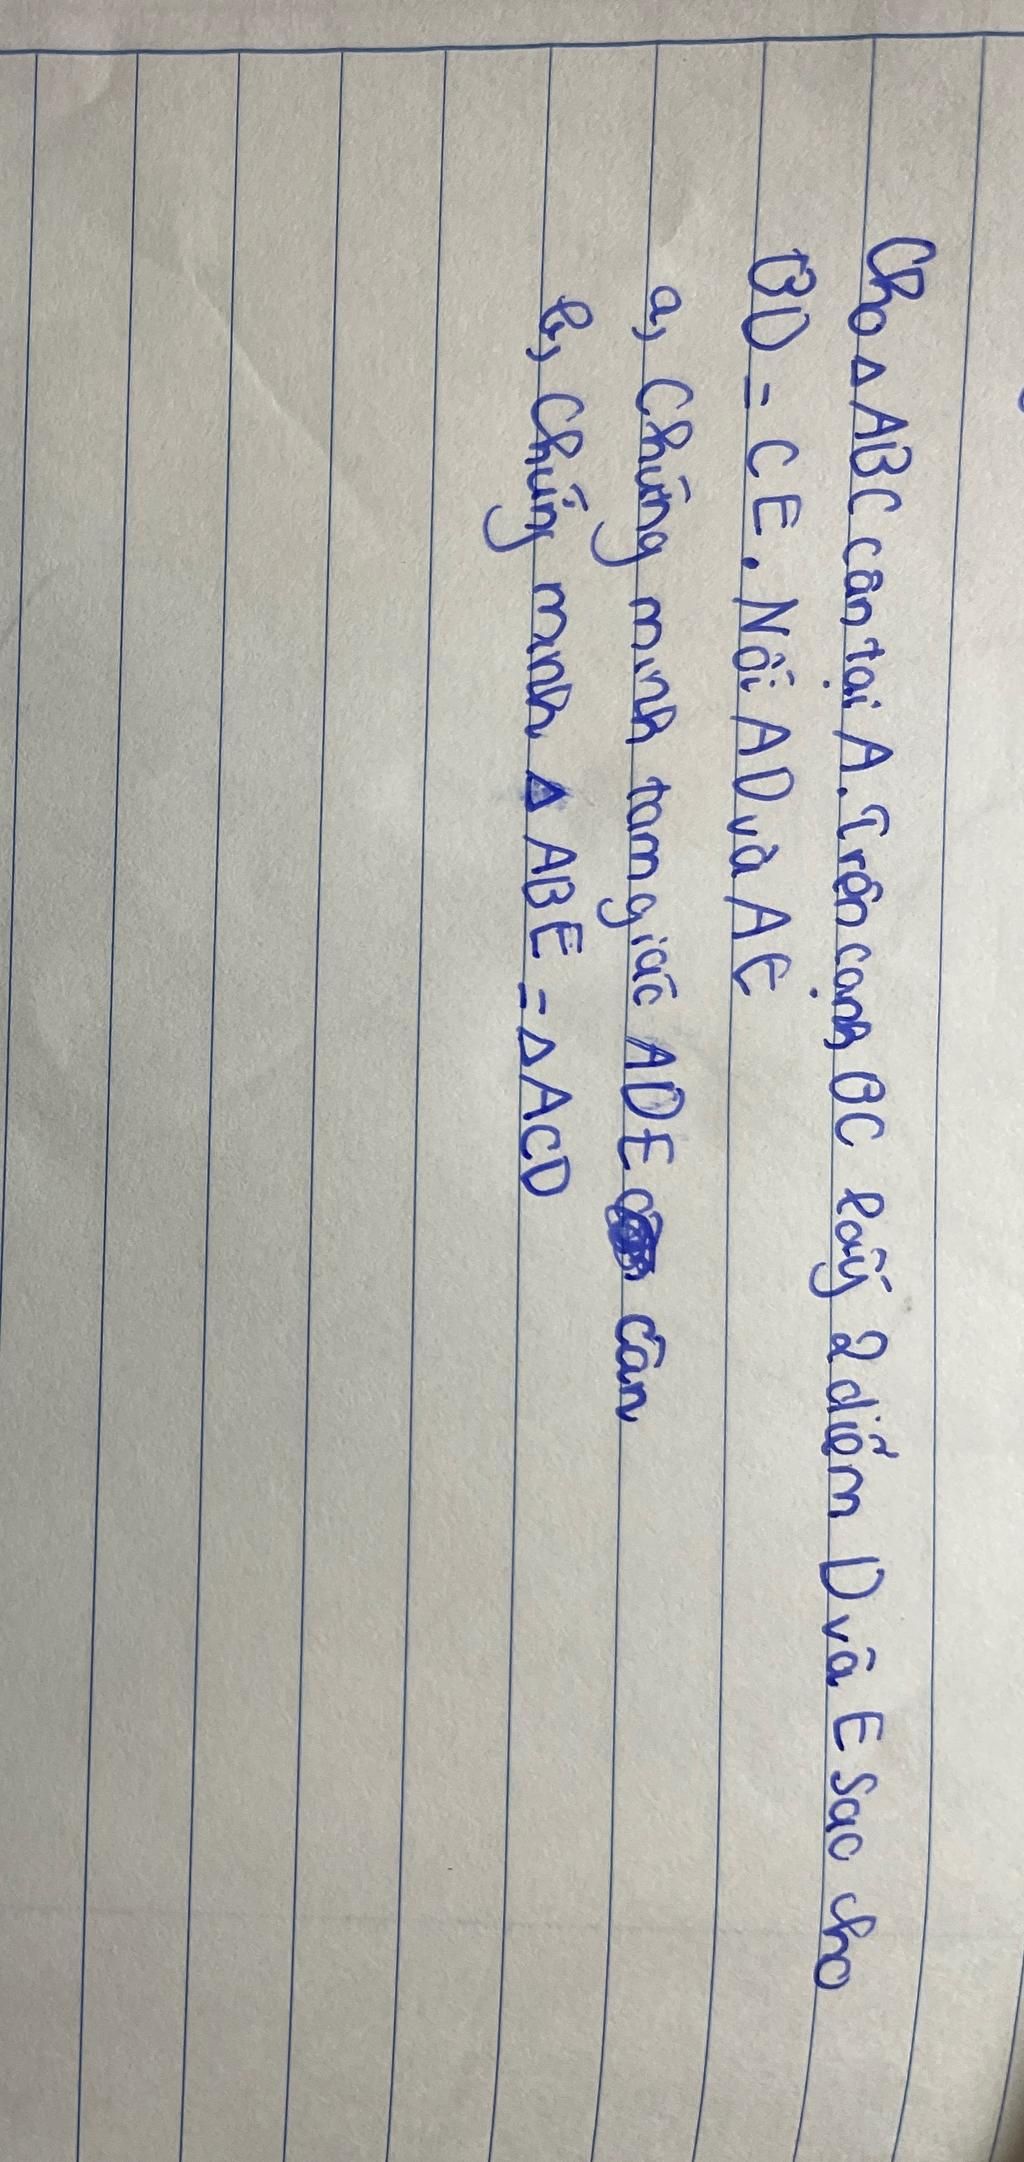 Cho Δ ABC cân tại A. Trên cạnh BC lấy 2 điểm D và E sao cho
BD = CE. Nối AD và AE
a, Chứng minh tam giác ADE cân
b, Chứng minh Δ ABE = Δ ACD